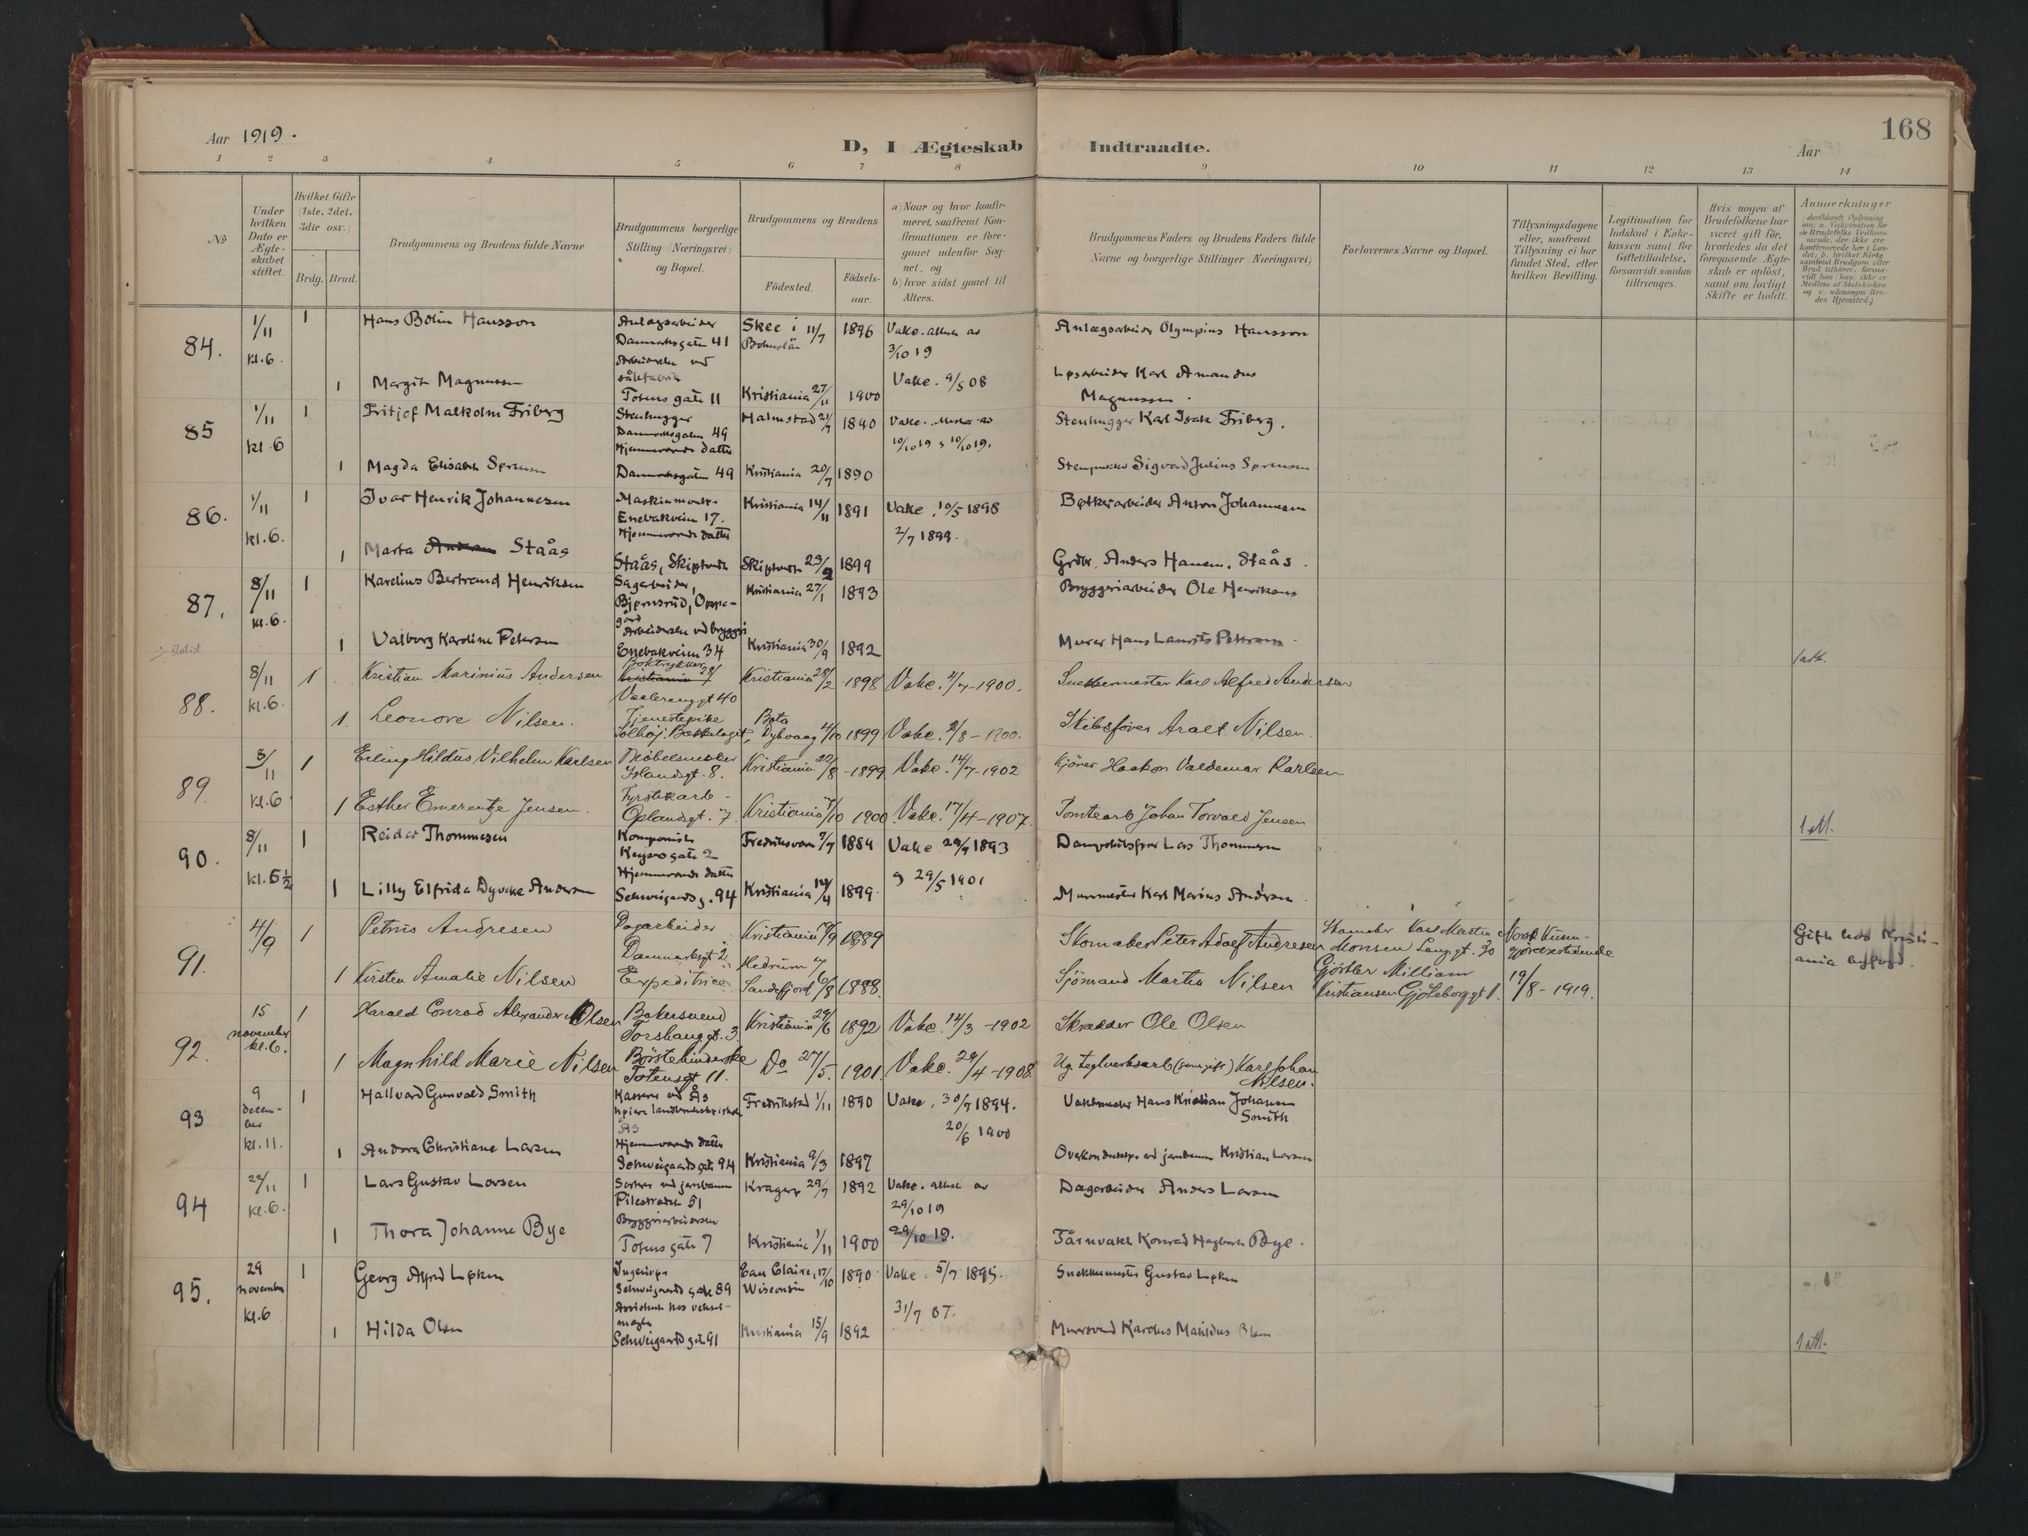 168
Aar 1919.
D, I Ægteskab Indtraadte.
Aar
1 2 3 4 5 6 7 8 9 10 11 12 13 14
No
Under hvilken Dato er Ægteskabet stiftet.
Hvilket Gifte (1ste, 2det, 3die osv.)
Brdg. Brud.
Brudgommens og Brudens fulde Navne
Brudgommens borgerlige Stilling (Næringsvei) og Bopæl.
Brudgommens og Brudens
Fødested.
Fødselsaar.
a) Naar og hvor konfirmeret, saafremt Konfirmationen er foregaaet udenfor Sognet, og
b) hvor sidst gaaet til Alters.
Brudgommens Faders og Brudens Faders fulde Navne og borgerlige Stillinger (Næringsvei)
Forlovernes Navne og Bopæl.
Tillysningsdagene eller, saafremt Tillysning ei har fundet Sted, efter hvilken Bevilling.
Legitimation for Indskud i Enkekassen samt for Giftetilladelse, forsaavidt saadan tiltrænges.
Hvis nogen af Brudefolkene har været gift før, hvorledes da det foregaaende Ægteskab er opløst, samt om lovligt Skifte er holdt.
Anmerkninger
84. 1/11 kl.6. 1 Hans Bolin Hansson Anlægsarbeider Danmarksgate 41 Skee i Bohuslän 11/7 1896 Vake. 3/10 19 Anlægsarbeider Olympius Hansson
1 Margit Magnussen Totens gate 11 Kristiania 27/11 1900 Vake. 9/5 08 Løsarbeider Karl Amandus Magnussen.
85 1/11 kl.6 1 Fritjof Malkolm Friberg Stenhugger Danmarksgaten 49 Halmstad 21/7 1890 Vake. 10/10 19 & 10/10 19. Stenhugger Karl Isak Friberg.
1 Magda Elisabeth Sørensen Hjemmeværende datter Danmarksgaten 49 Kristiania 20/7 1890 Sigvard Julius Sørensen
86. 1/11 kl.6. 1 Ivar Henrik Johannesen Maskinmontør Enebakveien 17. Kristiania 14/11 1891 Vake. 10/5 1898 Bøtkerarbeider Anton Johannesen
1 Marta Staås Hjemmeværende datter Staås, Skiptvedt Skiptvedt 23/2 1899 2/7 1899. Grdbr. Anders Hansen Staås.
87. 8/11 kl.6. 1 Karelius Bertrand Henriksen Sagarbeider, Bjørnsrud, Oppegård Kristiania 27/1 1893 Bryggeriarbeider Ole Henriksen
1 Valborg Karoline Petersen Arbeiderske ved bryggeri Enebakveien 34 Kristiania 30/9 1892 Murer Hans Laurits Petersen.
88. 8/11 kl.6. 1 Kristian Marinius Andersen Boktrykker Vaalerenggt 40 Kristiania 28/2 - 1898 Vake. 2/7 - 1900. Snekkermester Karl Alfred Andersen 1 att.
1. Leonore Nilsen. Tjenestepike Solhøj, Bækkelaget, Bota Dybvaag 4/10 1899 Vake. 3/8 - 1900. Skibsfører Aralt Nilsen.
89. 8/11 kl.6 1 Erling Hildus Vilhelm Karlsen Møbelsnekker Islandsgt. 8. Kristiania 22/8 - 1899 Vake. 14/7 - 1902 Kjører Haakon Valdemar Karlsen
1 Esther Emerentze Jensen. Fyrstikarb - Oplandsgt. 7. Kristiania 7/10 1900 Vake. 17/4 - 1907. Tomtearb Johan Torvald Jensen 1 att.
90. 8/11 kl.5½ 1 Reidar Thommesen Komponist Keysersgate 2 Fredriksværn 7/7 1884 Vake 29/9 1893 Dampskibsfører Lars Thommesen
1 Lilly Elfrida Dyveke Andersen Hjemmeværende datter Schweigaardsg. 94 Kristiania 14/4 1899. 9 29/5 1901 Murmester Karl Marius Andersen.
91. 4/9 1 Petrus Andresen Dagarbeider Danmarksgt 2 Kristiania 7/9 1889 Skomaker Peter Adolf Andresen Skomaker Karl Martin Monsen Langgt. 20 Norsk Kundgjørelsestidende Gift hos Kristiania byfogd.
1 Kirsten Amalie Nilsen Expeditrice Hedrum Sandefjord 6/8 1888. Sjømand Martin Nilsen Gjørtler William Kristiansen Gjøteborggt 1. 19/8 - 1919.
92. 15 november kl.6. 1 Harald Conrad Alexander Olsen Bakersvend Torshauggt. 3 Kristiania 29/6 1892 Vake. 14/3 - 1902 Skrædder Ole Olsen
1 Magnhild Marie Nilsen Børstebinderske Totensgt 11. Do 27/5. 1901. Vake. 29/4 - 1908. Ug. teglverksarb (senere gift) Karl Johan Nilsen.
93 9 december kl.11. 1 Hallvard Gunvald Smith Kasserer ved Ås høiere landbruksskole Ås Fredrikstad 1/11 1890 Vake. 30/9 1894. Vaktmester Hans Kristian Johansen Smith
1 Andora Christiane Larsen Hjemmeværende datter Schweigaardsgate 94 Kristiania 9/3 1897 20/6 1900 Overkonduktør ved jernbanen Kristian Larsen
94 29/11 kl.6. 1 Lars Gustav Larsen ved jernbanen Pilestrædet 51 Kragerø 29/7 1892 Vake. attest av 29/10 19 Dagarbeider Anders Larsen
1 Thora Johanne Bye Bryggeriarbeiderske Totens gate 7 Kristiania 1/11 1900 29/10 19. Tårnvakt Konrad Hagbart Bye.
95. 29 november kl.6 1 Georg Alfred Løken Ingeniør Schweigaards gate 89 Eau Claire, Wisconsin 17/10 1890 Vake. 5/7 1895. Snekkermester Gustav Løken 1
1 Hilda Olsen Assistent hos vekselmægler Schweigaardsgate 91 Kristiania 15/9 1892 31/7 07. Murersvend Karolus Matildus Olsen 1 att.